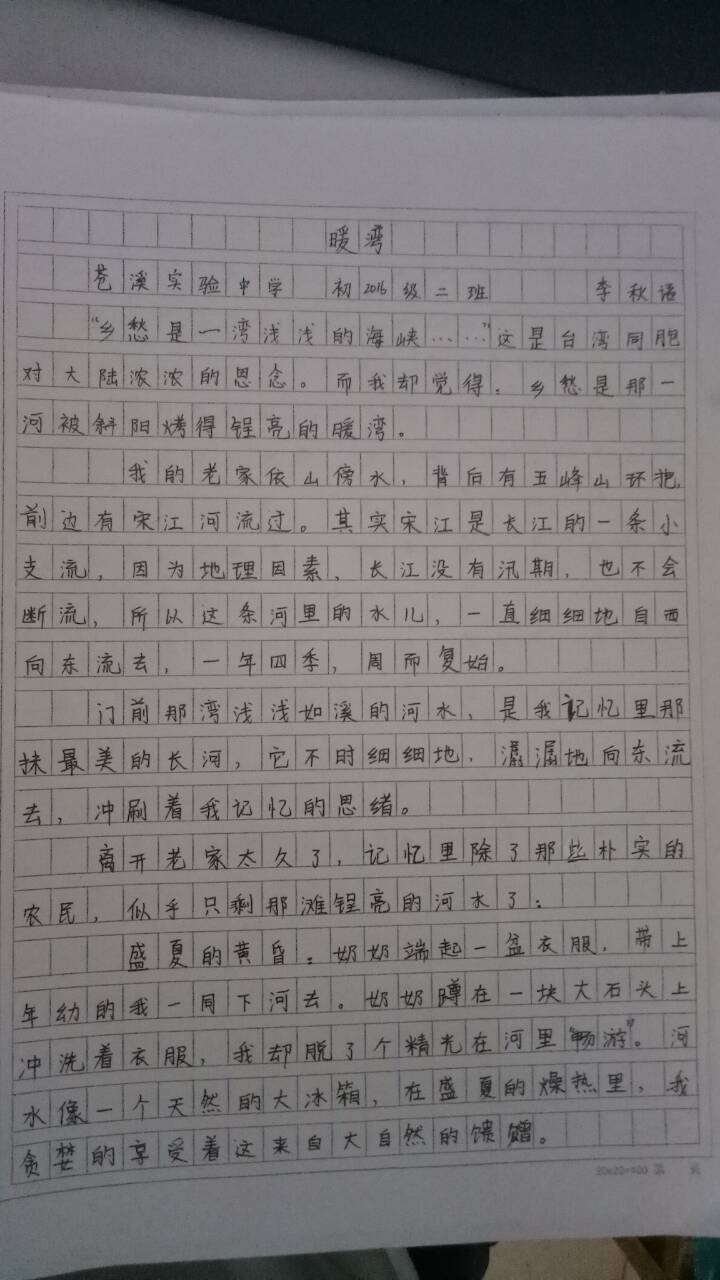 暖湾
苍溪实验中学 初2016级二班 李秋语
“乡愁是一湾浅浅的海峡……”这是台湾同胞
对大陆浓浓的思念。而我却觉得：乡愁是那一
河被斜阳烤得锃亮的暖湾。
我的老家依山傍水，背后有五峰山环抱
前边有宋江河流过。其实宋江是长江的一条小
支流，因为地理因素，长江没有汛期，也不会
断流，所以这条河里的水儿，一直细细地自西
向东流去，一年四季，周而复始。
门前那湾浅浅如溪的河水，是我记忆里那
抹最美的长河，它不时细细地，潺潺地向东流
去，冲刷着我记忆的思绪。
离开老家太久了，记忆里除了那些朴实的
农民，似乎只剩那滩锃亮的河水了：
盛夏的黄昏：奶奶端起一盆衣服，带上
年幼的我一同下河去。奶奶蹲在一块大石头上
冲洗着衣服，我却脱了个精光在河里“畅游”。河
水像一个天然的大冰箱，在盛夏的燥热里，我
贪婪的享受着这来自大自然的馈赠。
20x20=400 第 页